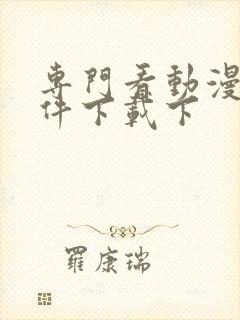 專門看動漫
件下載下
羅康瑞